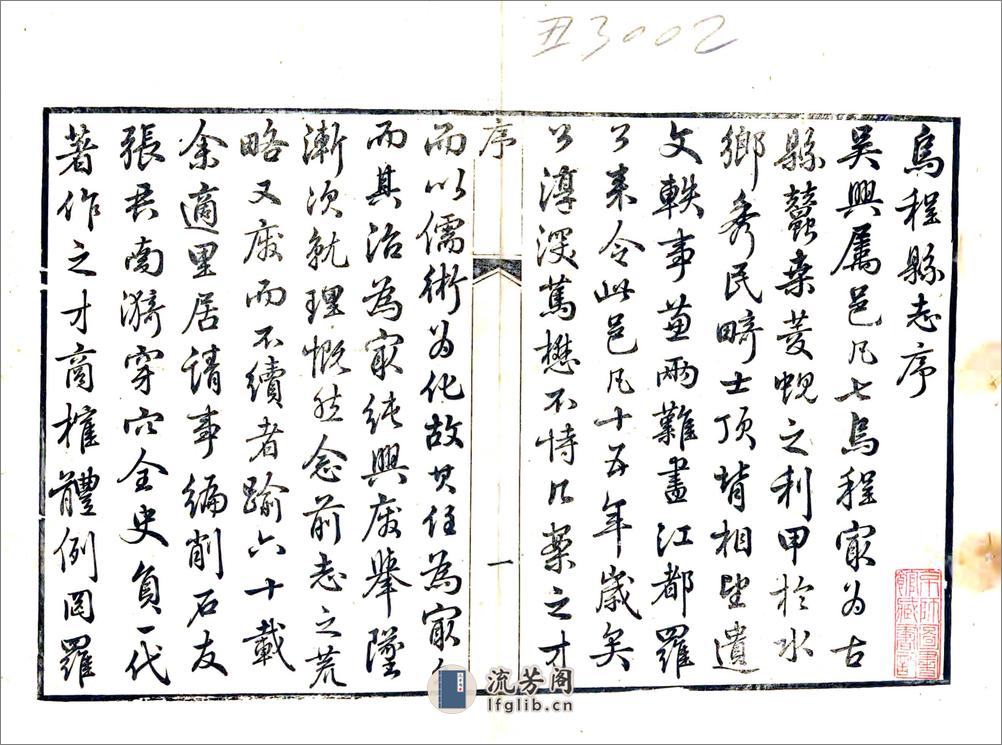 丑3002
烏程縣志序
吳興屬邑凡七烏程寂為古
縣蠶桒菱蜆之利甲於水
鄉秀民畸士頂背相望遺
文軼事更兩難盡江都羅
公来令此邑凡十五年歲矣
公淳深篤懋不恃公藥之才
序
一
而以儒術为化故其任為寂久
而其治為寂純興廢舉墜
漸次就理慨然念前志之荒
略又廢而不續者踰六十載
余適里居請事編削石友
張君南漪穿穴全史負一代
著作之才商榷體例罔羅
京師圖書館藏書記
流芳阁
lfglib.cn